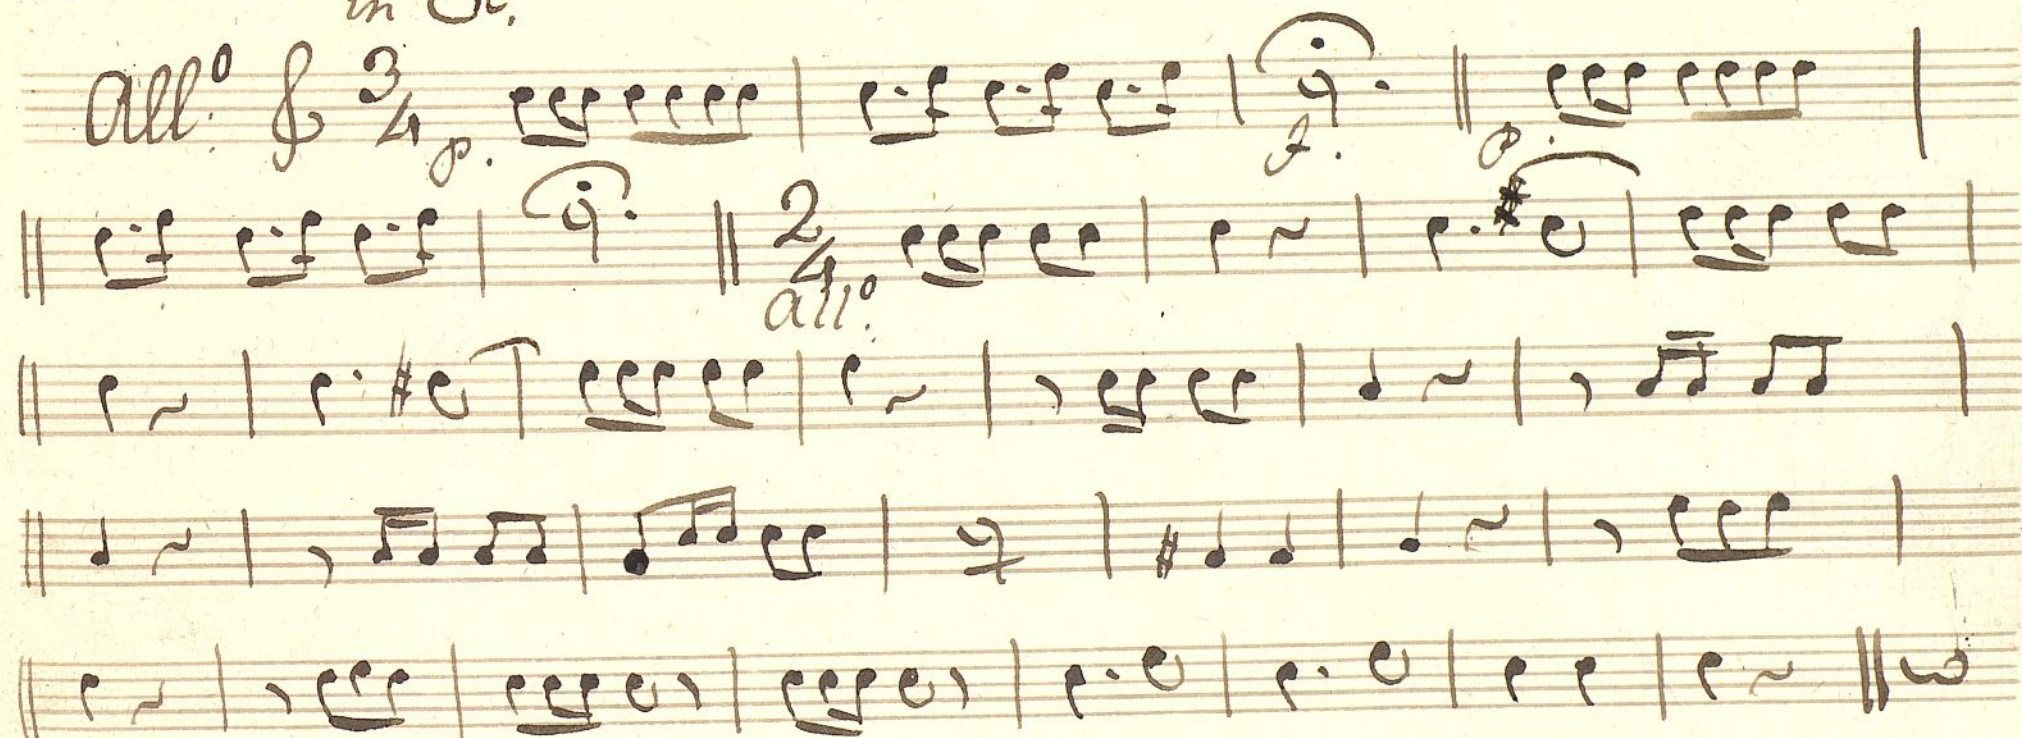 in
All.º 3/4 p. f. p.
2/4
all.º